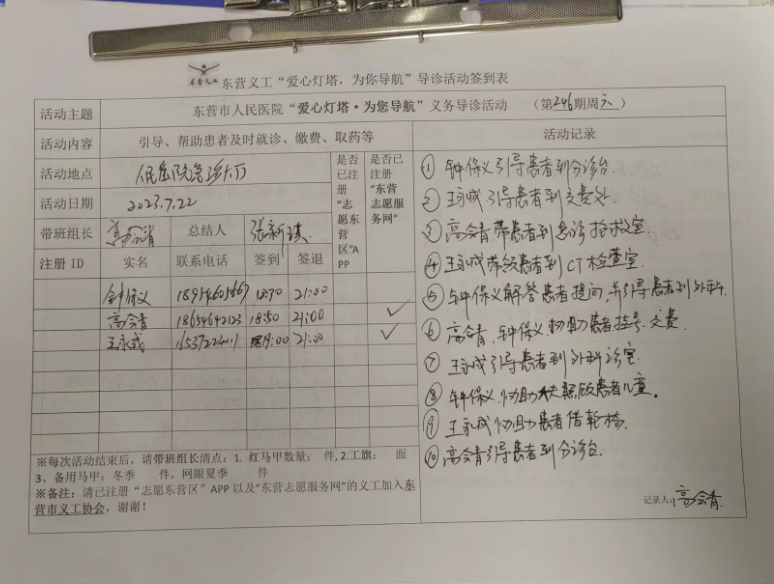 东营义工
东营义工“爱心灯塔，为你导航”导诊活动签到表
活动主题 东营市人民医院“爱心灯塔·为您导航”义务导诊活动 （第246期周六）
活动内容 引导、帮助患者及时就诊、缴费、取药等 活动记录
活动地点 人民医院急诊大厅
活动日期 2023.7.22
是否已注册“志愿东营区”APP
是否已注册“东营志愿服务网”
带班组长 高会清 总结人 张新琪
注册 ID 实名 联系电话 签到 签退
钟保义 21:00
高会清 18654642123 18:50 21:00 ✓
王永成 19:00 21:00 ✓
※每次活动结束后，请带班组长清点：1. 红马甲数量： 件, 2.工旗： 面
3、备用马甲：冬季 件，网眼夏季 件
※备注：请已注册“志愿东营区”APP 以及“东营志愿服务网”的义工加入东
营市义工协会，谢谢！
① 钟保义引导患者到分诊台.
② 王永成引导患者到交费处.
③ 高会清带患者到急诊抢救室.
④ 王永成带领患者到CT检查室.
⑤ 钟保义解答患者提问，并引导患者到外科.
⑥ 高会清、钟保义协助患者挂号、交费.
⑦ 王永成引导患者到外科诊室.
⑧ 钟保义协助照顾患者儿童。
⑨ 王永成协助患者借轮椅.
⑩ 高会清引导患者到分诊台.
记录人：高会清